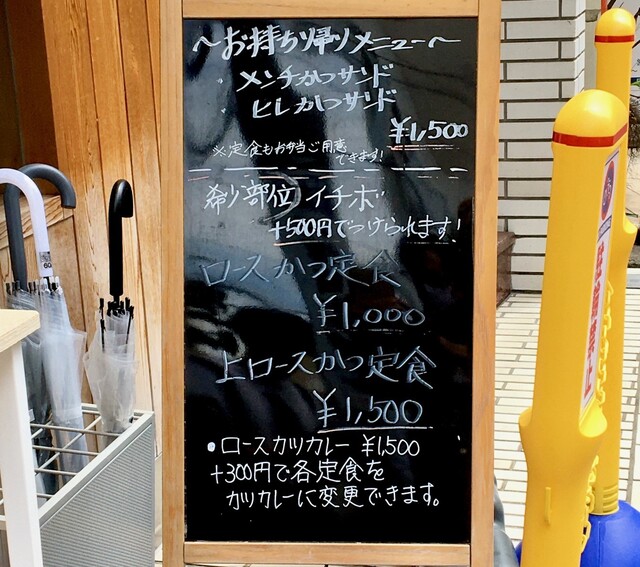 ～お持ち帰りメニュー～
メンチかつサンド
ヒレかつサンド
¥1,500
※定食もお弁当ご用意
できます!
希少部位 イチボ
+500円でつけられます!
ロースかつ定食
¥1,000
上ロースかつ定食
¥1,500
・ロースカツカレー ¥1,500
+300円で各定食を
カツカレーに変更できます。
60